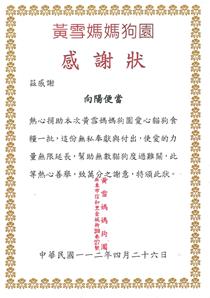 黃雪媽媽狗園
感謝狀
茲感謝
向陽便當
熱心捐助本次黃雪媽媽狗園愛心貓狗食
糧一批，這份無私奉獻與付出，使愛的力
量無限延長，幫助無數貓狗度過難關，此
等熱心善舉，致萬分之謝意，特頒此狀。
黃雪媽媽狗園
中華民國一一二年四月二十六日